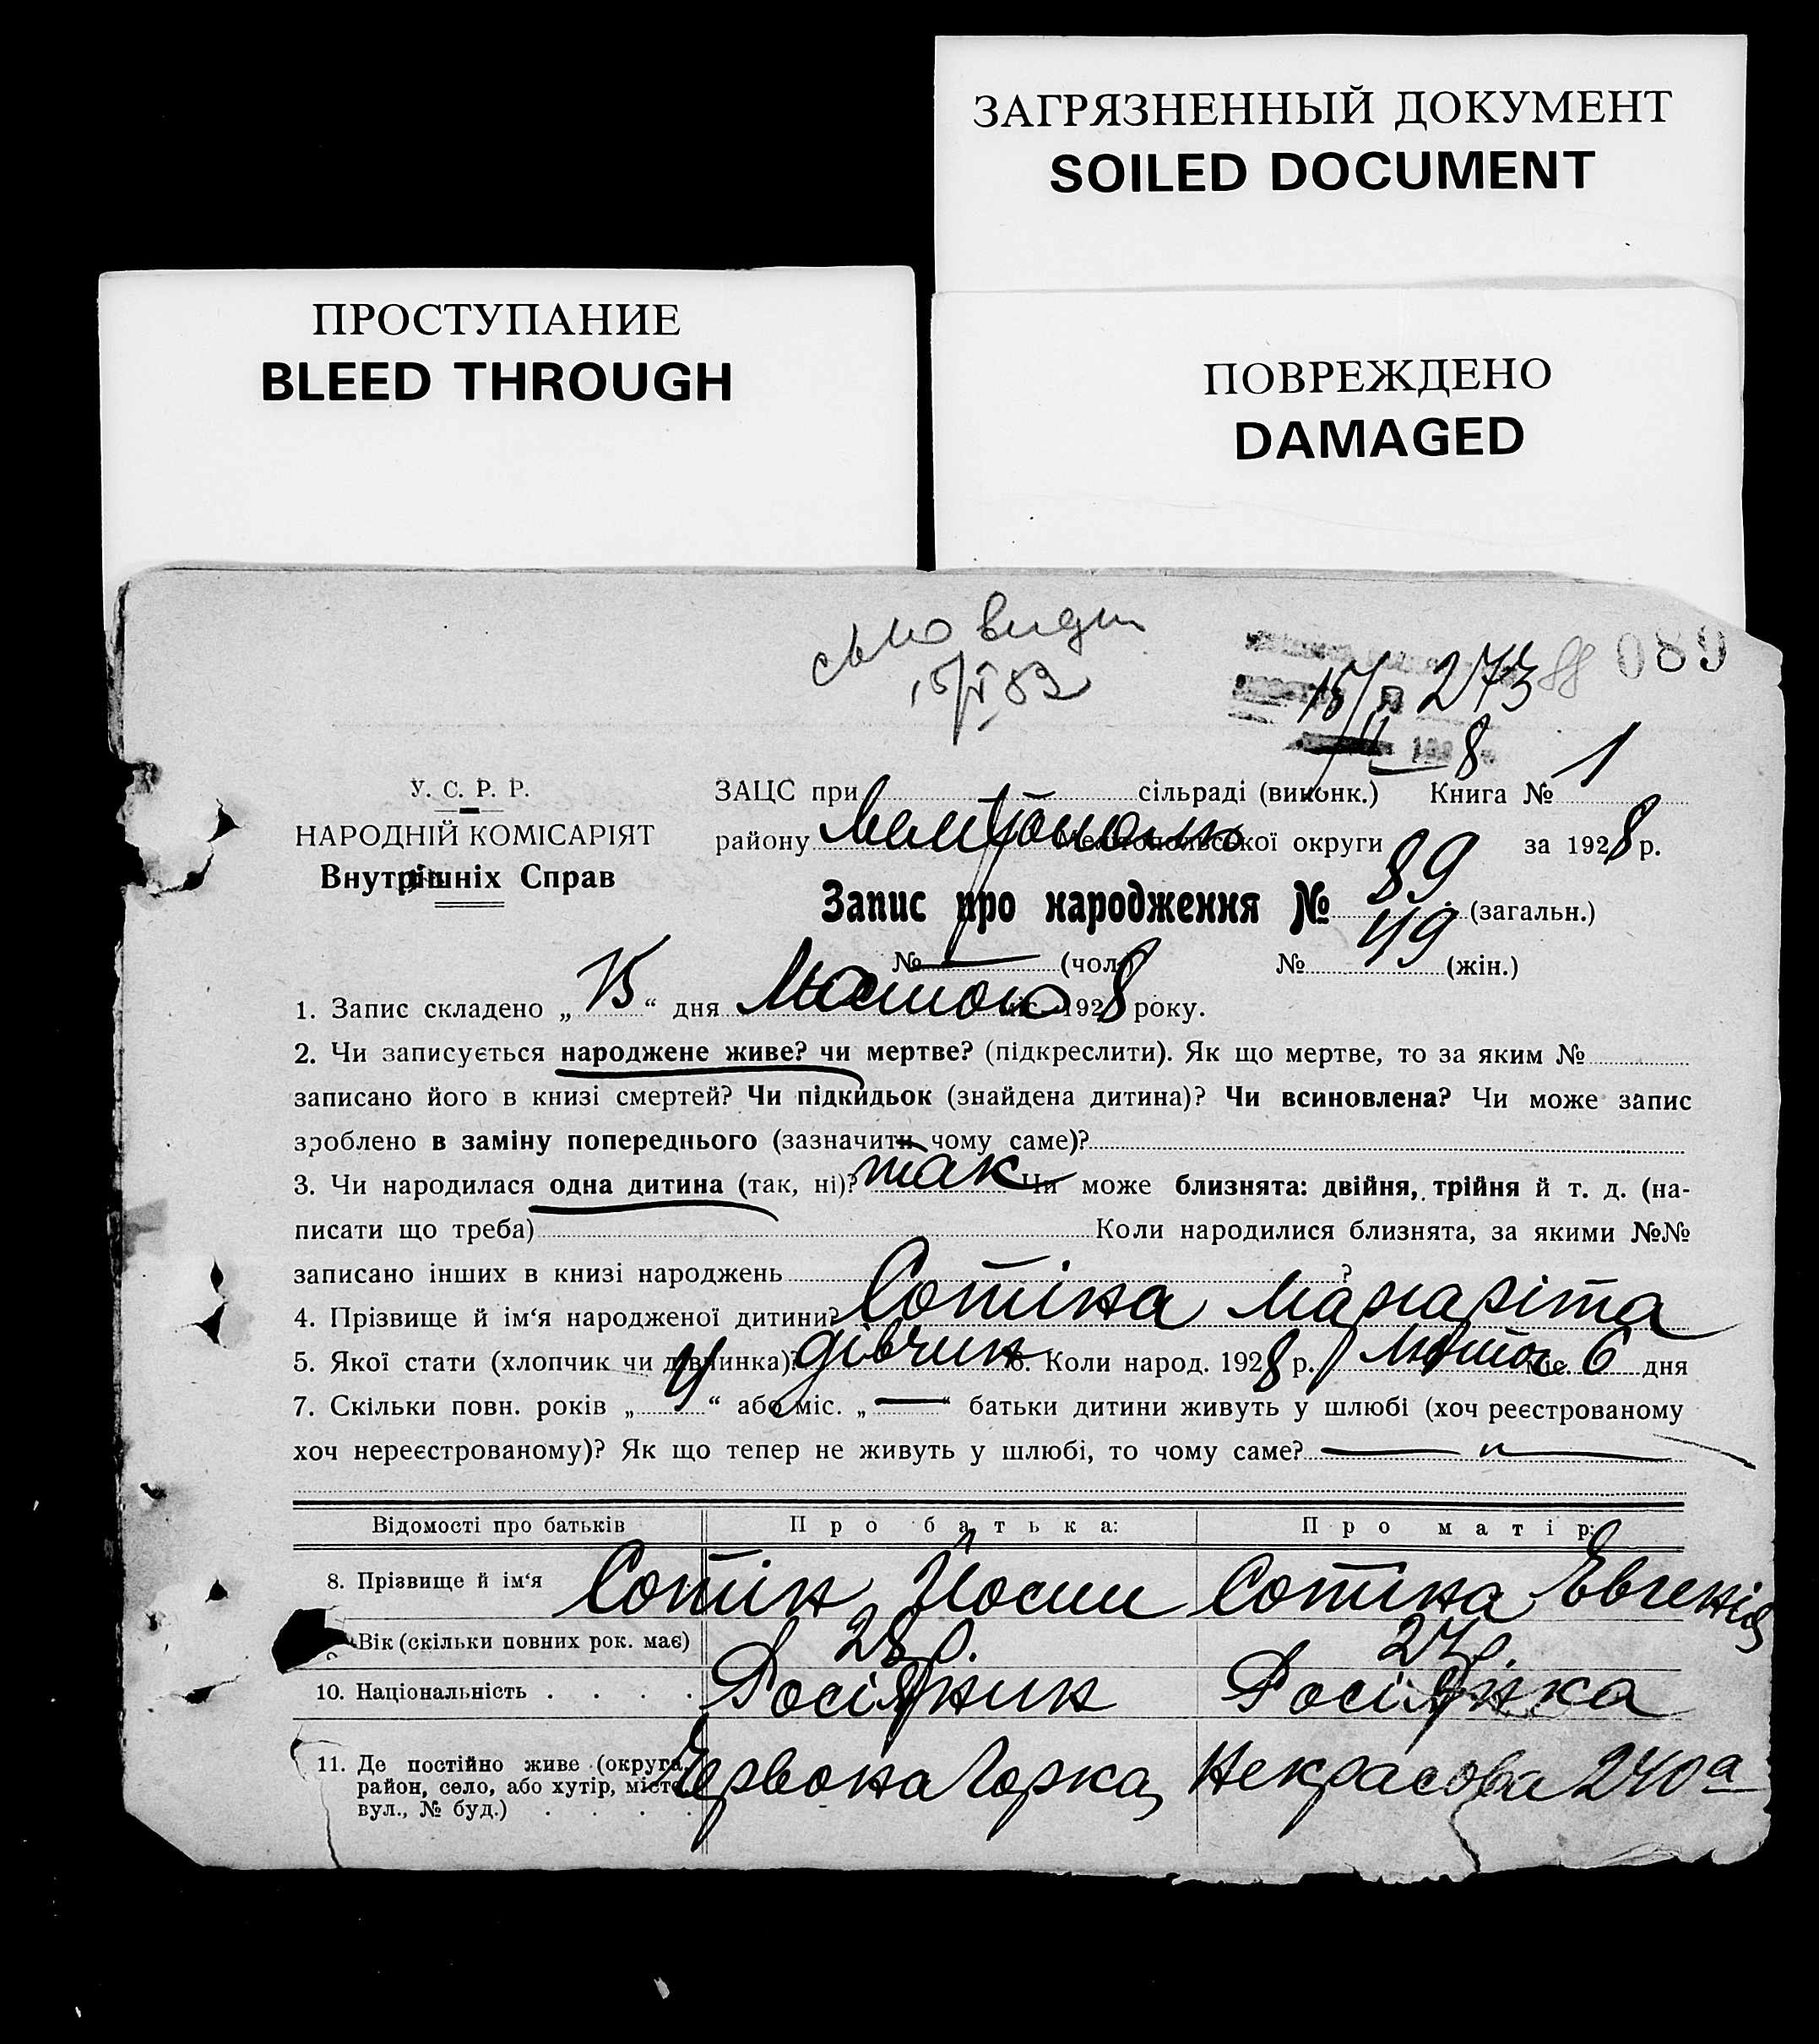 ЗАГРЯЗНЕННЫЙ ДОКУМЕНТ
SOILED DOCUMENT
ПРОСТУПАНИЕ
BLEED THROUGH
ПОВРЕЖДЕНО
DAMAGED
15/V 82
15/ 273 88 089
8
У. С. Р. Р.
НАРОДНІЙ КОМІСАРІЯТ
Внутрішніх Справ
ЗАЦС при сільраді (виконк.) Книга № 1
району Мелітополь Мелітопольської округи за 1928 р.
Запис про народження № 89 (загальн.)
№ — (чол.) № 49 (жін.)
1. Запис складено „ 15 “ дня Лютого міс. 1928 року.
2. Чи записується народжене живе? чи мертве? (підкреслити). Як що мертве, то за яким №
записано його в книзі смертей? Чи підкидьок (знайдена дитина)? Чи всиновлена? Чи може запис
зроблено в заміну попереднього (зазначити чому саме)?
3. Чи народилася одна дитина (так, ні)? так Чи може близнята: двійня, трійня й т. д. (на-
писати що треба) Коли народилися близнята, за якими №№
записано інших в книзі народжень ?
4. Прізвище й ім‘я народженої дитини? Сотіна Маргаріта
5. Якої стати (хлопчик чи дівчинка)? дівчин 6. Коли народ. 1928 р. Лютого міс. 6 дня
7. Скільки повн. років „ 4 “ або міс. „ — “ батьки дитини живуть у шлюбі (хоч реєстрованому
хоч нереєстрованому)? Як що тепер не живуть у шлюбі, то чому саме? — „ —
Відомості про батьків Про батька: Про матір:
8. Прізвище й ім‘я Сотін Йосип Сотіна Євгенія
Вік (скільки повних рок. має) 28 р. 27 р.
10. Національність . . . . Росіянин Росіянка
11. Де постійно живе (округа,
район, село, або хутір, місто,
вул., № буд.) . . . . Червона Горка, Некрасова 240а